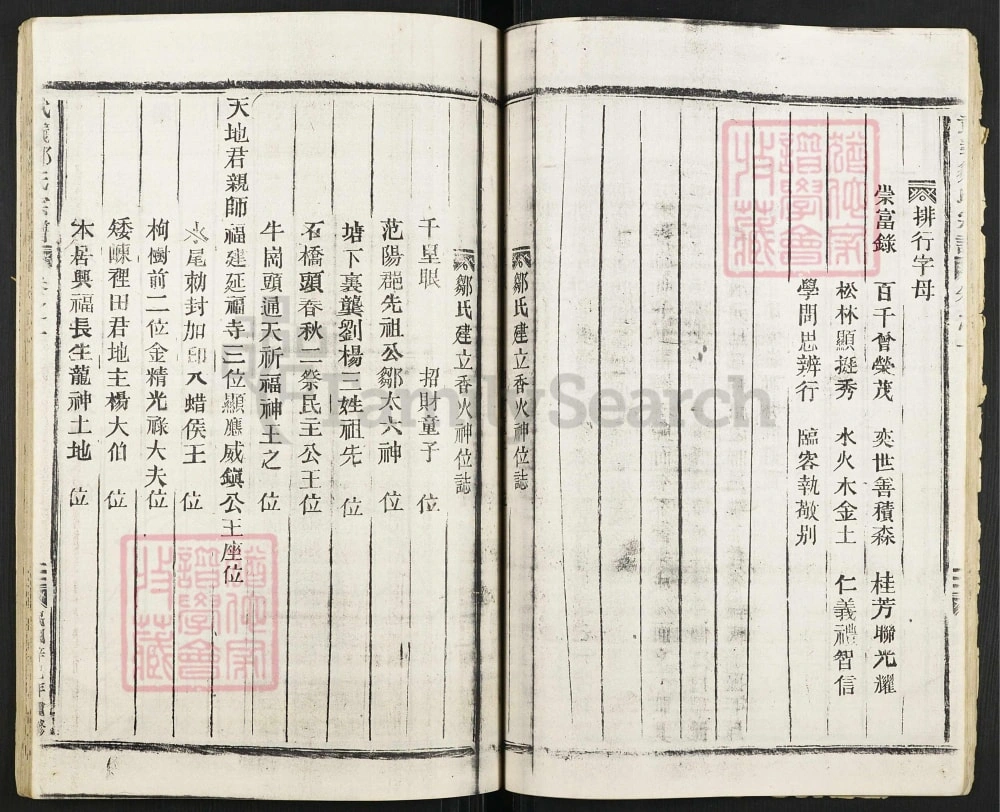 排行字母
崇富錄　百千會榮茂　奕世善積森　桂芳聯光耀
松林顯挺秀　水火木金土　仁義禮智信
學問思辨行　臨容執敬别
鄒氏建立香火神位誌
鄒氏建立香火神位誌
千里眼　招財童子　位
范陽郡先祖公鄒太六神　位
塘下裏龔劉楊三姓祖先　位
石橋頭春秋二祭民主公王位
牛崗頭通天祈福神王之　位
天地君親師福建延福寺三位顯應威鎮公王座位
水尾勅封加印八蜡侯王　位
枸樹前二位金精光祿大夫位
矮崠裡田君地主楊大伯　位
本居興福長生龍神土地　位
鄒氏宗譜
年重修
猶他家譜學會收藏
猶他家譜學會收藏
FamilySearch